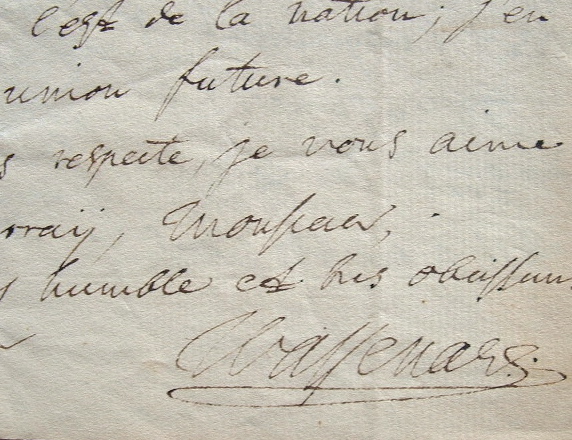 l'égd de la nation; j'en
union future.
s respecte, je vous aime
rraij, Monsieur,
s humble et très obeissan
Wassenaer